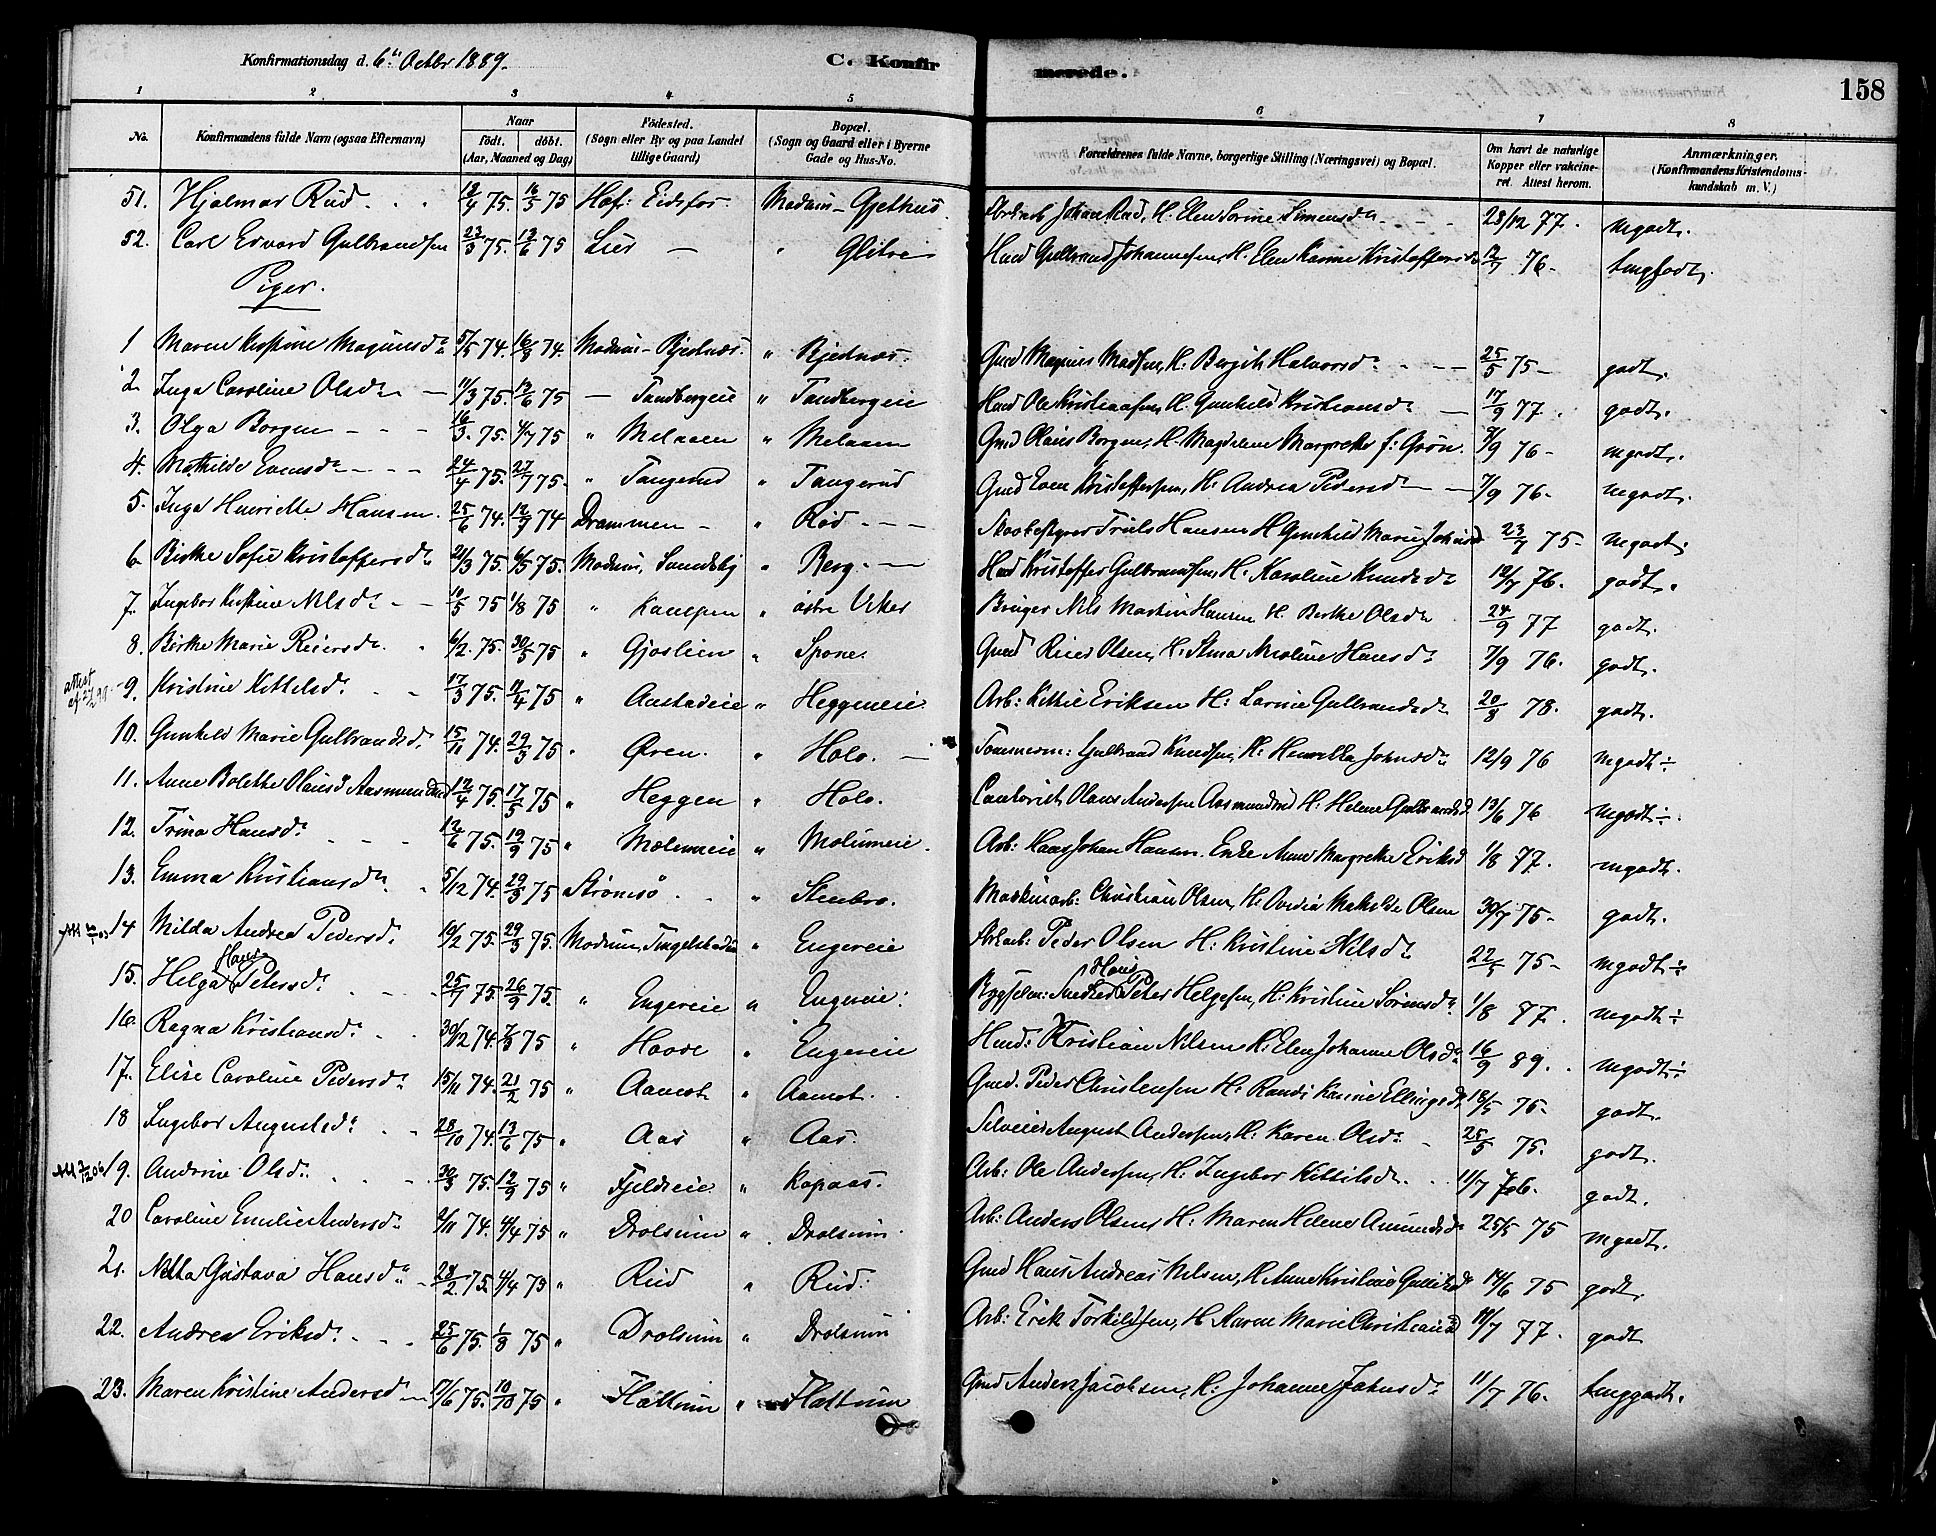 Konfirmationsdag d. 6te Octbr 1889.
C. Konfirmerede.
158
1 2 3 4 5 6 7 8
No.
Konfirmandens fulde Navn (ogsaa Efternavn)
Naar
födt. döbt.
(Aar, Maaned og Dag)
Födested.
(Sogn eller By og paa Landet tillige Gaard)
Bopæl.
(Sogn og Gaard eller i Byerne Gade og Hus-No.
Forældrenes fulde Navne, borgerlige Stilling (Næringsvei) og Bopæl.
Om havt de naturlige Kopper eller vakcineret. Attest herom.
Anmærkninger.
(Konfirmandens Kristendomskundskab m. V.)
51. Hjalmar Rud 75. 75 Hof: Eidsfos Modum - Gjethus Johan Rud, H. Elen Sorine Simensdr 23/12 77. mgodt.
52. Carl Edvard Gulbrandsen 23/3 75. 13/6 75 Lier — " Glitre Hmd Gulbrand Johannesen, H. Elen Karine Kristoffersd 12/7 76. tmgodt.
Piger.
1 Maren Kristine Magnusdr 5/5 74. 16/8 74. Modum - Bjestnæs. " Bjestnæs. Gmd Magnus Madsen, H. Bergith Halvorsdr 25/5 75 godt.
2. Inga Caroline Olsdr 11/3 75. 13/6 75 — Tandbergeie " Tandbergeie Hmd Ole Kristiansen, H. Gunhild Kristiansdr 17/9 77. godt.
3. Olga Borgen 16/3. 75. 4/7 75 " Melaaen " Melaaen Gmd Olaus Borgen, H. Magdalene Margrethe f: Grøn. 9/9 76 mgodt.
4. Mathilde Evensdr 24/4 75. 27/7 75. " Tangerud " Tangerud Gmd Even Kristoffersen, H. Andrea Pedersdr 7/9 76. mgodt.
5. Inga Henriette Hansen. 25/6 74. 12/9 74 Drammen " Rød Skovbestyrer Truls Hansen H Gunhild Marie Johnsd 23/7 75 mgodt.
6 Birthe Sofie Kristoffersdr 21/3 75. 6/5 75. Modum, Sundsby " Berg. Hmd Kristoffer Gulbrandsen, H. Karoline Knudsdr 12/7 76. godt.
7. Ingebor Kristine Nilsdr 10/5 75 1/8 75 " Kampen " østre Viker Bruger Nils Martin Hansen H. Berthe Olsdr 24/9 77 godt.
8. Birthe Marie Reiersdr 6/2. 75. 30/5 75 " Gjøslien " Spone. Gmd Reier Olsen, H. Stina Nicoline Hansdr 7/9 76. godt.
attest
9. Kristine Kittelsdr 17/3 75. 11/4 75 " Anstadeie " Heggeneie Arb: Kittil Eriksen H: Larine Gulbrandsdr 20/8 78. godt.
10. Gunhild Marie Gulbrandsdr 15/11 74. 29/3 75 " Øren. " Holo. Tommerm: Gulbrand Knudsen, H: Henrikka Johnsdr 12/9 76 mgodt÷
11. Anne Bolette Olausd Aasmundrud 12/4 75. 17/5 75 " Heggen " Holo. Olaus Andersen Aasmundrud H. Helene Gulbrandsd 13/6 76 mgodt÷.
12. Trina Hansdr 12/6 75. 19/9 75 " Mælumeie " Molumeie. Arb: Hans Johan Hansen. Enke Anne Margrethe Eriksd 1/8 77. mgodt.
13. Emma Kristiansdr 5/12 74. 29/3 75 Strømsø " Stenbro. Maskinarb: Christian Olsen, H. Ovedia Mathilde Olsen 30/7 75 godt.
14 Milda Andrea Pedersdr 10/2 75. 29/3 75. Modum, " Engereie Peder Olsen H: Kristine Nilsdr 22/5 75 mgodt÷
15. Helga Hans Petersdr 25/7 75. 26/9 75. " Engereie " Engereie. Smedsv Hans Peter Helgesen, H: Kristine Sørensdr 1/8 77. mgodt÷
16. Ragna Kristiansdr 30/12 74. 7/3 75 " Hovde " Engereie Hmd: Kristian Nilsen H: Elen Johanne Olsdr 16/9 89. mgodt÷
17. Elise Caroline Pedersdr 15/11 74. 21/2 75 " Aamot " Aamot. Gmd. Peder Christensen H: Randi Karine Ellingsd 18/5 75. godt.
18 Ingebor Augustsdr 28/10 74. 13/6 75 " Aas " Aas. Selveier August Andersen, H. Karen Olsdr 25/5 75. godt.
19. Andrine Olsdr 30/3 75. 12/9 75 " Fjeldseie " Kopaas. Arb: Ole Andersen, H. Ingebor Kittilsdr 11/7 76. godt.
20 Caroline Emilie Andersdr 2/11 74. 4/4 75 " Drolsum " Drolsum. Arb: Anders Olsen H: Maren Helene Amundsdr 25/5 75 mgodt.
21. Netta Gustava Hansdr 28/2 75 4/4 75 " Rud " Rud. Gmd Hans Andreas Nilsen, H Anne Kristine Gulliksd 14/6 75 godt.
22. Andrea Eriksdr 25/6 75. 1/8 75 " Drolsum " Drolsum Arb: Erik Torkildsen, H Karen Marie Christiansd 11/7 77. godt
23. Maren Kristine Andersdr 17/6 75. 10/10 75 " Flattum " Flattum Gmd Anders Jacobsen, H. Johanne Johnsdr 11/7 76. tmggodt.